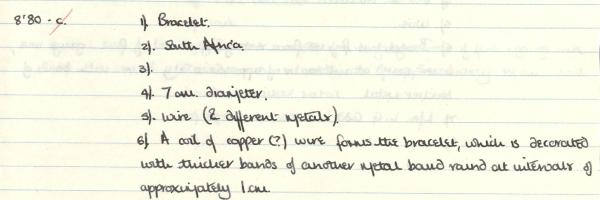 8'80 - c. 1). Bracelet.
2). South Africa
3).
4). 7 cm. diameter.
5). wire (2 different metals).
6). A coil of copper (?) wire forms the bracelet, which is decorated
with thicker bands of another metal band round at intervals of
approximately 1 cm.